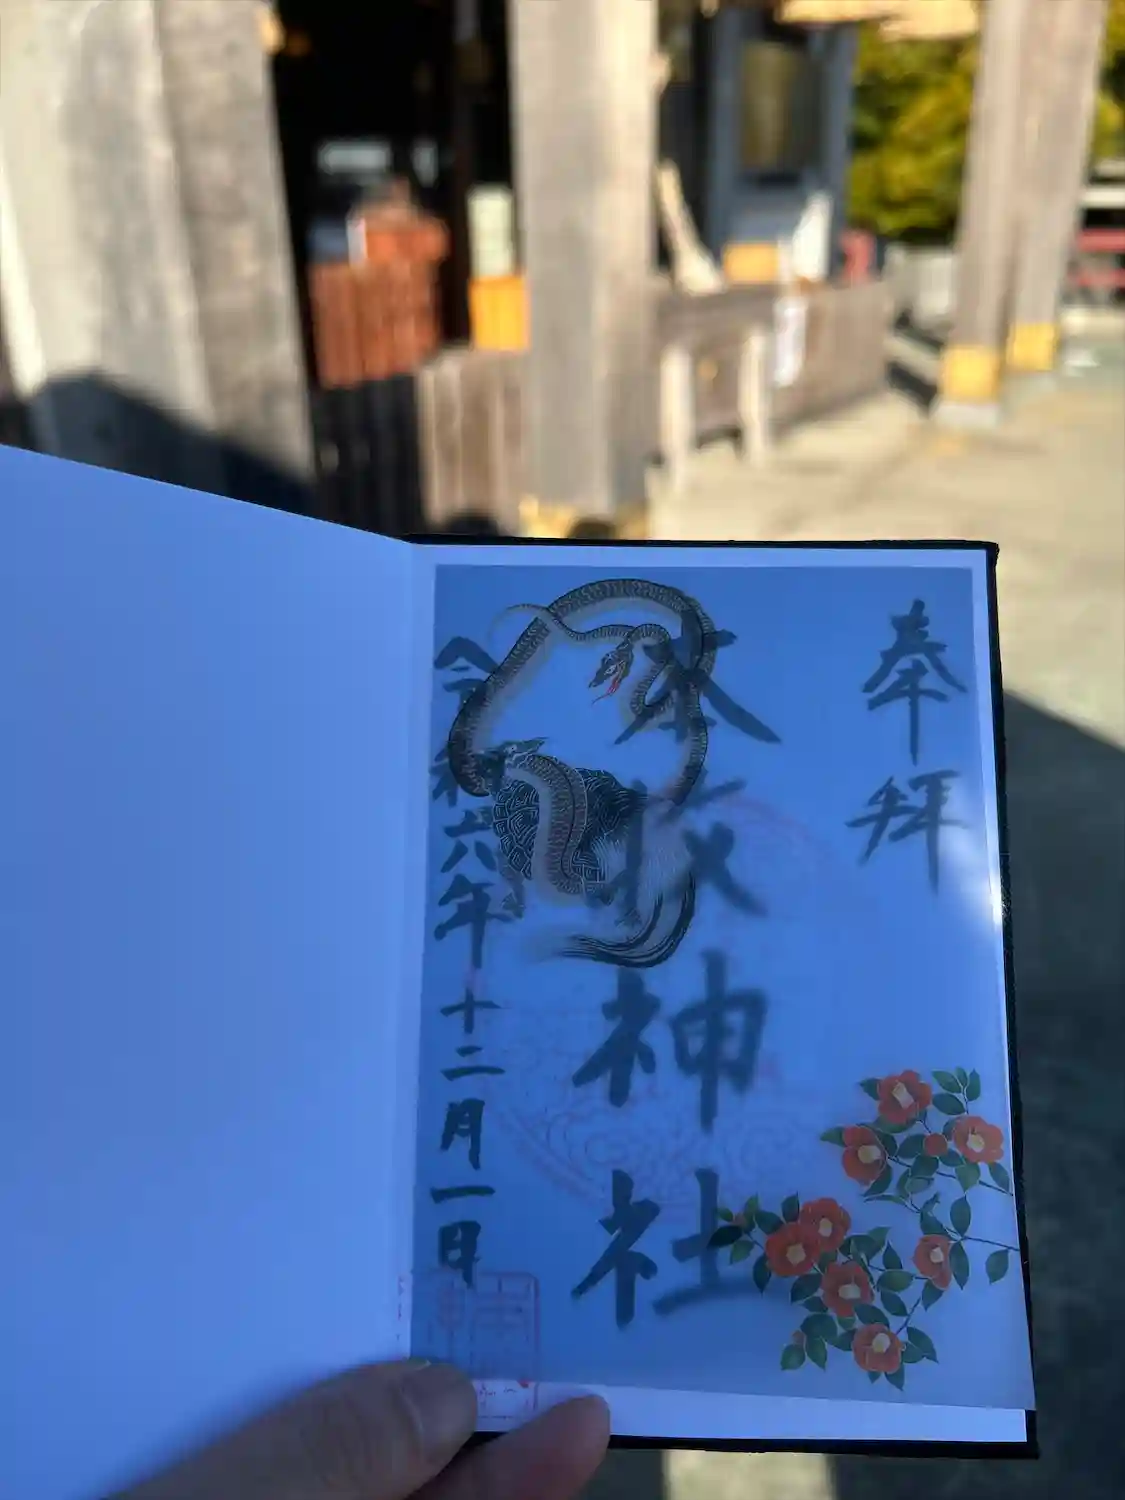 奉拝
本牧神社
令和六年十二月一日